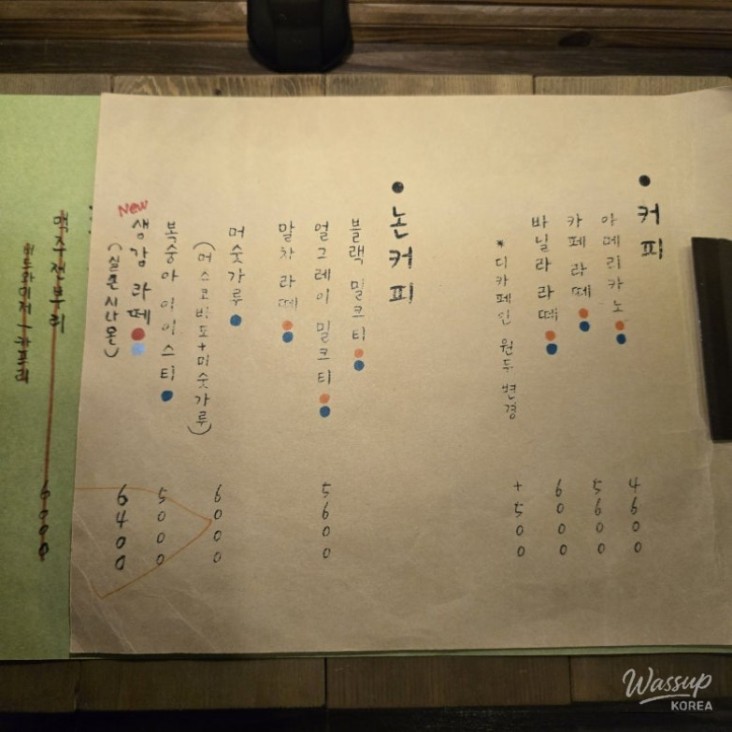 ● 커피
아메리카노 4600
카페 라떼 5600
바닐라 라떼 6000
* 디카페인 원두 변경 +500
● 논커피
블랙 밀크티
얼그레이 밀크티 5600
말차 라떼
머슷가루 6000
(머스코바도+미숫가루)
복숭아 아이스티 5000
New
생강 라떼 6400
(실론 시나몬)
맥주 6000
카프리
Wassup
KOREA